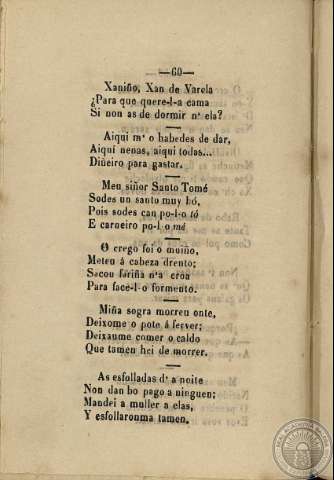 —60—
Xaniño, Xan de Varela
¿Para que quere-l-a cama
Si non as de dormir n' ela?
Aiquí m' o habedes de dar,
Aiquí nenas, aiquí todas...
Diñeiro para gastar.
Meu siñor Santo Tomé
Sodes un santo muy bó,
Pois sodes can po-l-o tó
E carneiro po-l-o mé
O crego foi o muiño,
Meteu á cabeza drento;
Sacou fariña n'a croa
Para face-l-o formento.
Miña sogra morreu onte,
Deixome o pote á ferver;
Deixaume comer o caldo
Que tamen hei de morrer.
As esfolladas d' a noite
Non dan bo pago a ninguen;
Mandei a muller a elas,
Y esfollaronma tamen.